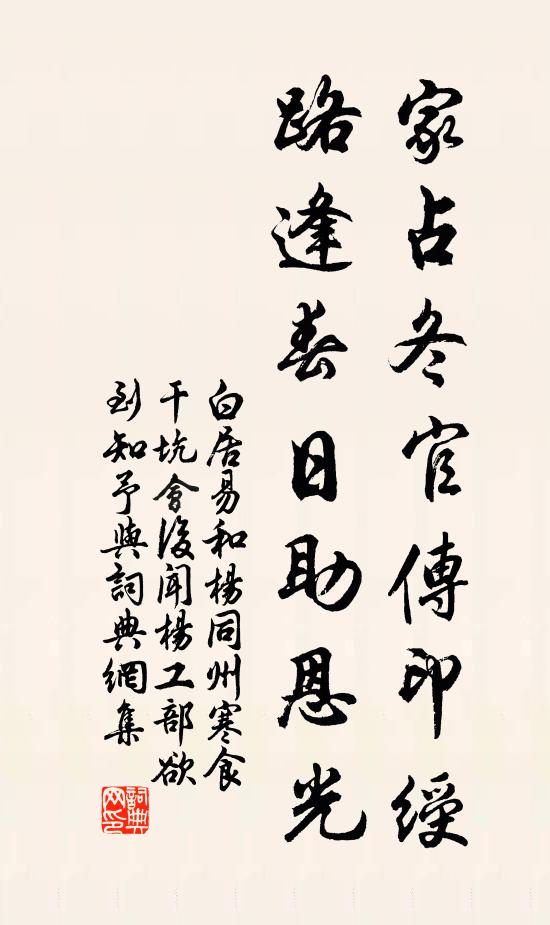 家占冬官傳印綬
路逢春日助恩光
白居易和楊同州寒食
干坑會後聞楊工部欲
到知予與詞典網集
詞典網印